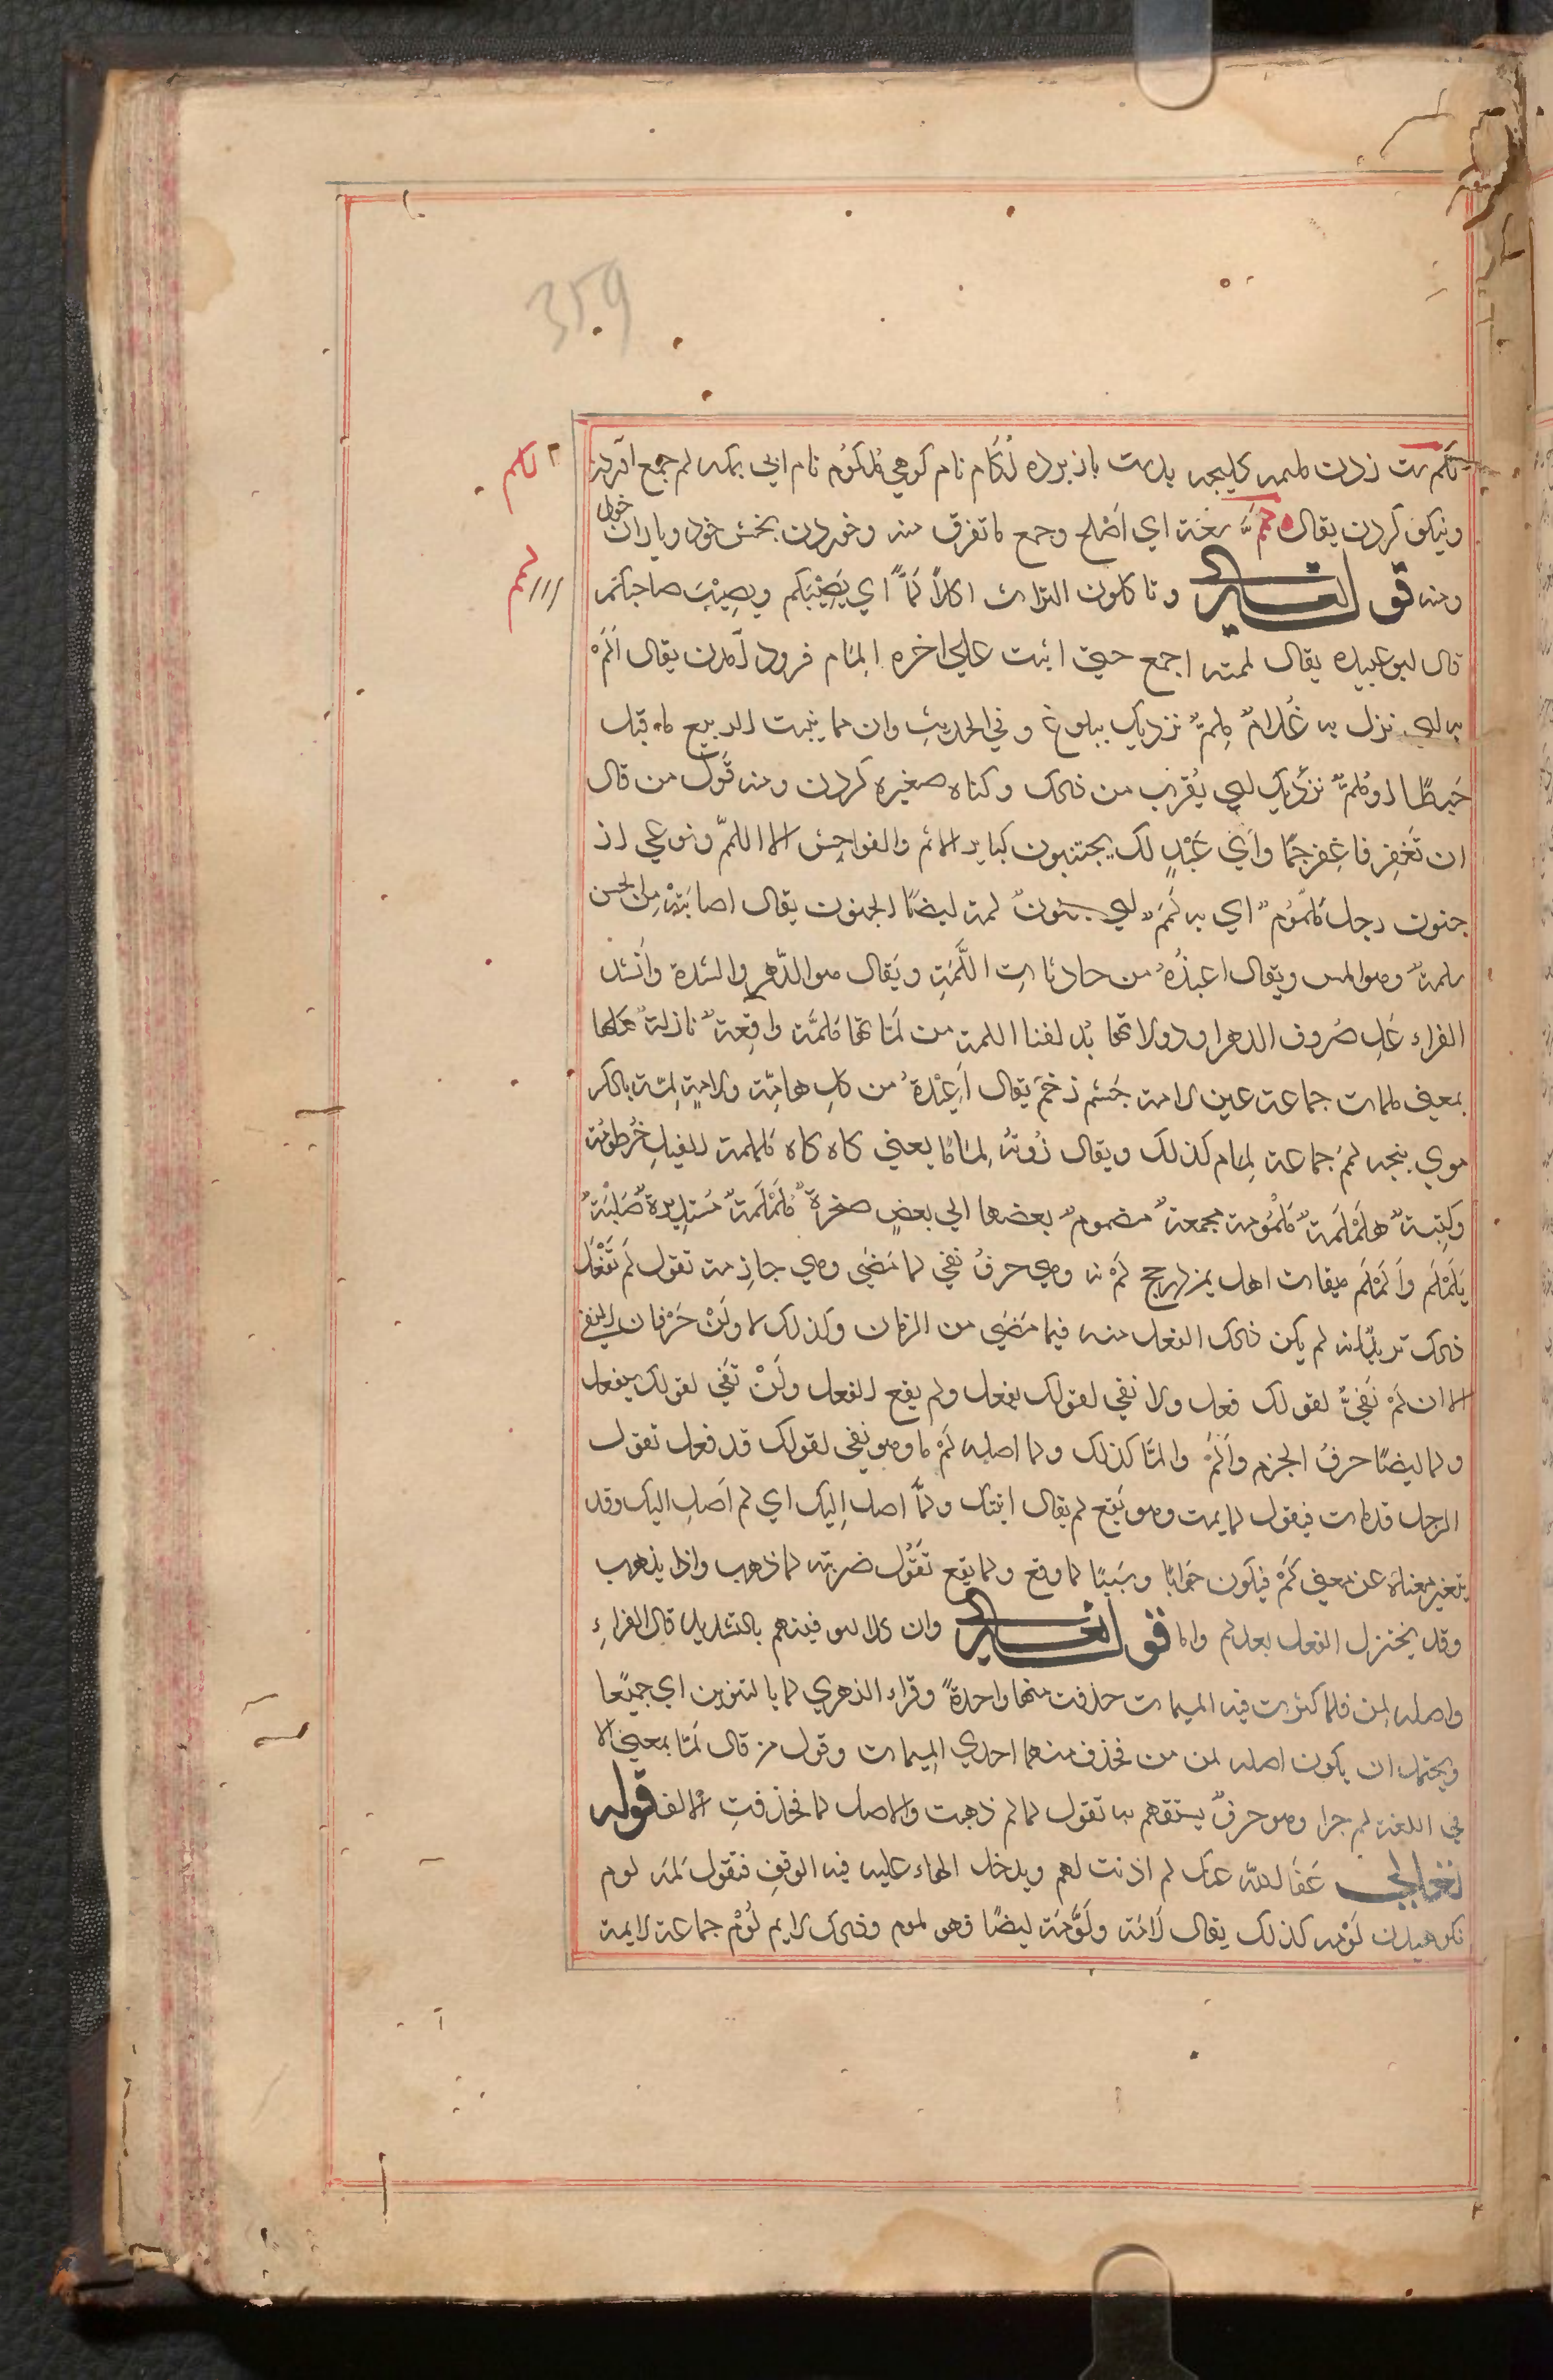 359
لكم مشت زدن ملكمه كليچه بدست باز برده لُكام نام كوهي مُلكوُم نام ابي بمكه لم جمع آوردن
لكم
ونيكو كردن يقال لمّ شعثه اي اَصْلح وجمع ما تفرق منه وخوردن بخش خود وياران خود
لمم
ومنه قوله تعالي وتاكلون التراث اكلاً لَمّاً اي نَصِيْبَكم ونصِيْبَ صاحبكم
قال ابو عبيده يقال لممته اجمع حتي اتيت علي اخره اِلمام فرود آمدن يقال اَلَمَّ
به اي نزل به غُلامٌ مُلِمٌّ نزديك ببلوغ وفي الحديثِ وان مما ينبت الربيع ما يقتل
حَبطًا او يُلمّ نزديك اي يُقرب من ذلك وكناه صغيره كردن ومنه قَول من قال
ان تَغفِر فاغفِر جَمًا وَاَيّ عَبْدٍ لك يجتنبون كبايرالاثم والفواحِش الا اللمّم ونوعي از
جنون رجل مَلمُوم اي به لَمَمٌ اي جنونٌ لمة ايضًا الجنون يقال اصابَتْهُ مِن الجن
لمةٌ وهو المس ويقال اعيذُهُ من حادثات اللَّمَّةِ ويَقال هو الدَّهر والشدة وانَشد
الفراء عَلِ صُروف الدهر او دولاتها يُدلننا اللمةِ من لَمّاتها مُلمَّة واقِعة نازلةٌ مهلها
بمعني ملمات جماعة عين لامة چَشم زخَم يقال اُعِيْذُهُ من كلِ هامّة ولامةٍ لِمّة بالكسر
موي بنجه لِمَم جماعة لِمام كذلك ويقال زُوتهُ لِمَامًا يعني كاه كاه مُلملمة الفيلِ خُرطومُه
وكتِيبة مُلَمْلَمة مَلْمُومة مجمعة مضموم بعضها الي بعضٍ صخرة مُلَمْلَمةٌ مُستديرة صَلْبَة
يَلَمْلَم وَاَلَمْلَم ميقات اهل يمن لحج لَمْ نه وهي حرفُ نفي لما مَضَي وهي جازمة تقول لَم تَفْعَل
ذلك تريدانه لم يكن ذلك الفعل منه فيما مَضَي من الزمان وكذلك لا ولَنْ حَرْفان للنفي
الا ان لَمْ نَفيٌ لقولك فعل ولا نفي لقولك يفعل ولم يقع الفعل ولَنْ نَفي لقولك سيفعل
ولما ايضًا حرفُ الجزم وَاَلَمْ وَالمّا كذلك ولما اصله لَمْ ما وهو نفي لقولك قد فعل تقول
الرجل قدمات فيقول لما يمت وهو يَقع لم يقال اتيتك ولَمّا اصل اِليك اي لم اَصلِ اليك وقد
يتغير معناه عن معني لَمْ فيكون جَوابًا وسَببًا لما وقع ولما يقع تقُول ضربته لما ذهب واذا يذهب
وقد يختزل الفعل بعد لم واما قوله تعالي وان كلا لما ليوفينهم بالتشديد قال الفراءِ
واصله لمن فلما كثرت فيه الميمات حذفت منها واحدةً وقراء الزهري لما بالتنوين اي جميْعا
ويحتمل ان يكون اصله لمن من فحذف منهما احدي الميمات وقول من قال لَمّا بمعني الا
في اللغة لِم جرا وهو حرفٌ يستفهم به تقول لما لم ذهبت والاصل لما فحذفتِ الالف قوله
تعالي عَفا الله عنك لم اذنت لهم ويدخل الهاء عليه فيه الوقفِ فتقول لَمه لوم
نكوهيدن لَوْمه كذلك يقال لَامَه ولَوَّمَه ايضًا فهو لموم وذلك لايم لُوَّم جماعة لايمة